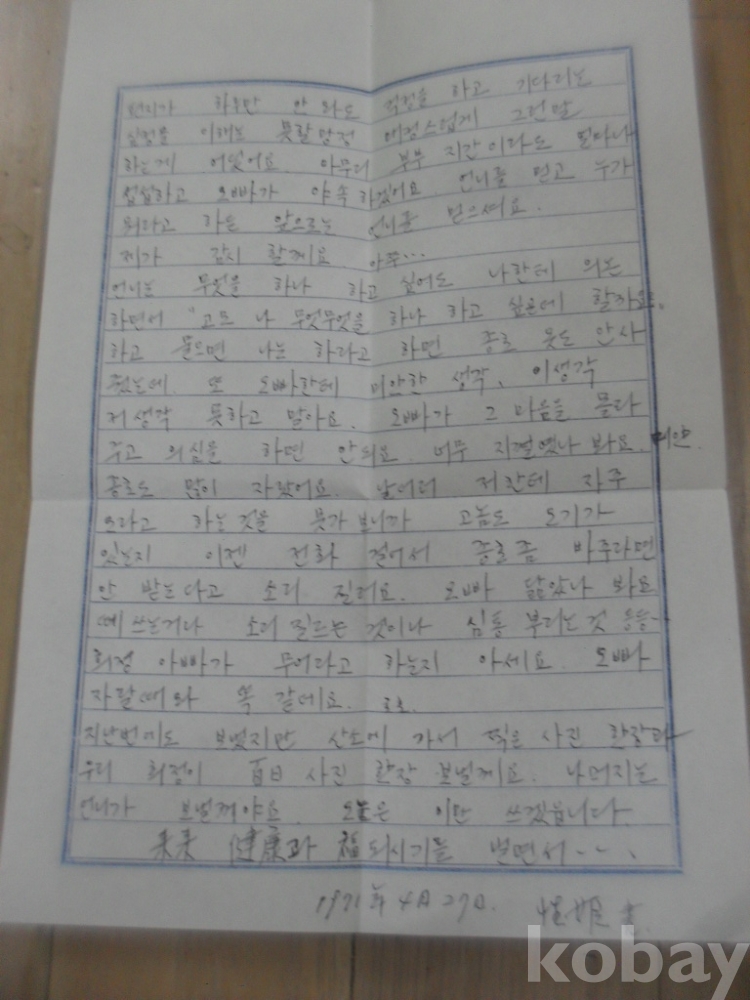 편지가 하루만 안 와도 걱정을 하고 기다리는
심정을 이해는 못할 망정 매정스럽게 그런말
하는게 어있어요. 아무리 부부 지간이라도 얼마나
섭섭하고 오빠가 야속하겠어요. 언니를 믿고 누가
뭐라고 하든 앞으로는 언니를 믿으세요.
제가 감시 할께요 아주...
언니는 무엇을 하나 하고 싶어도 나한테 의논
하면서 "고모 나 무엇무엇을 하나 하고 싶은데 할까요
하고 물으면 나는 하라고 하면 종호 옷도 안사
줬는데. 또 오빠한테 미안한 생각, 이생각
저생각 못하고 말아요. 오빠가 그 마음을 몰라
주고 의심을 하면 안되요. 너무 지껄였나 봐요. 미안.
종호도 많이 자랐어요. 날더러 저한테 자주
오라고 하는것을 못가보니까 고놈도 오기가
있는지 이젠 전화 걸어서 종호좀 바꾸라면
안 받는다고 소리 질러요. 오빠 닮았나 봐요
떼쓰는거나 소리 질르는 것이나 심통 부리는것
희정 아빠가 무어라고 하는지 아세요. 오빠
자랄때와 똑 같데요. 호호.
지난번에도 보냈지만 산소에 가서 찍은 사진 한장과
우리 희정이 百日 사진 한장 보낼께요. 나머지는
언니가 보낼꺼야요. 오늘은 이만 쓰겠읍니다.
健康과 福되시기를 빌면서...
1971年 4月 27日.
kobay